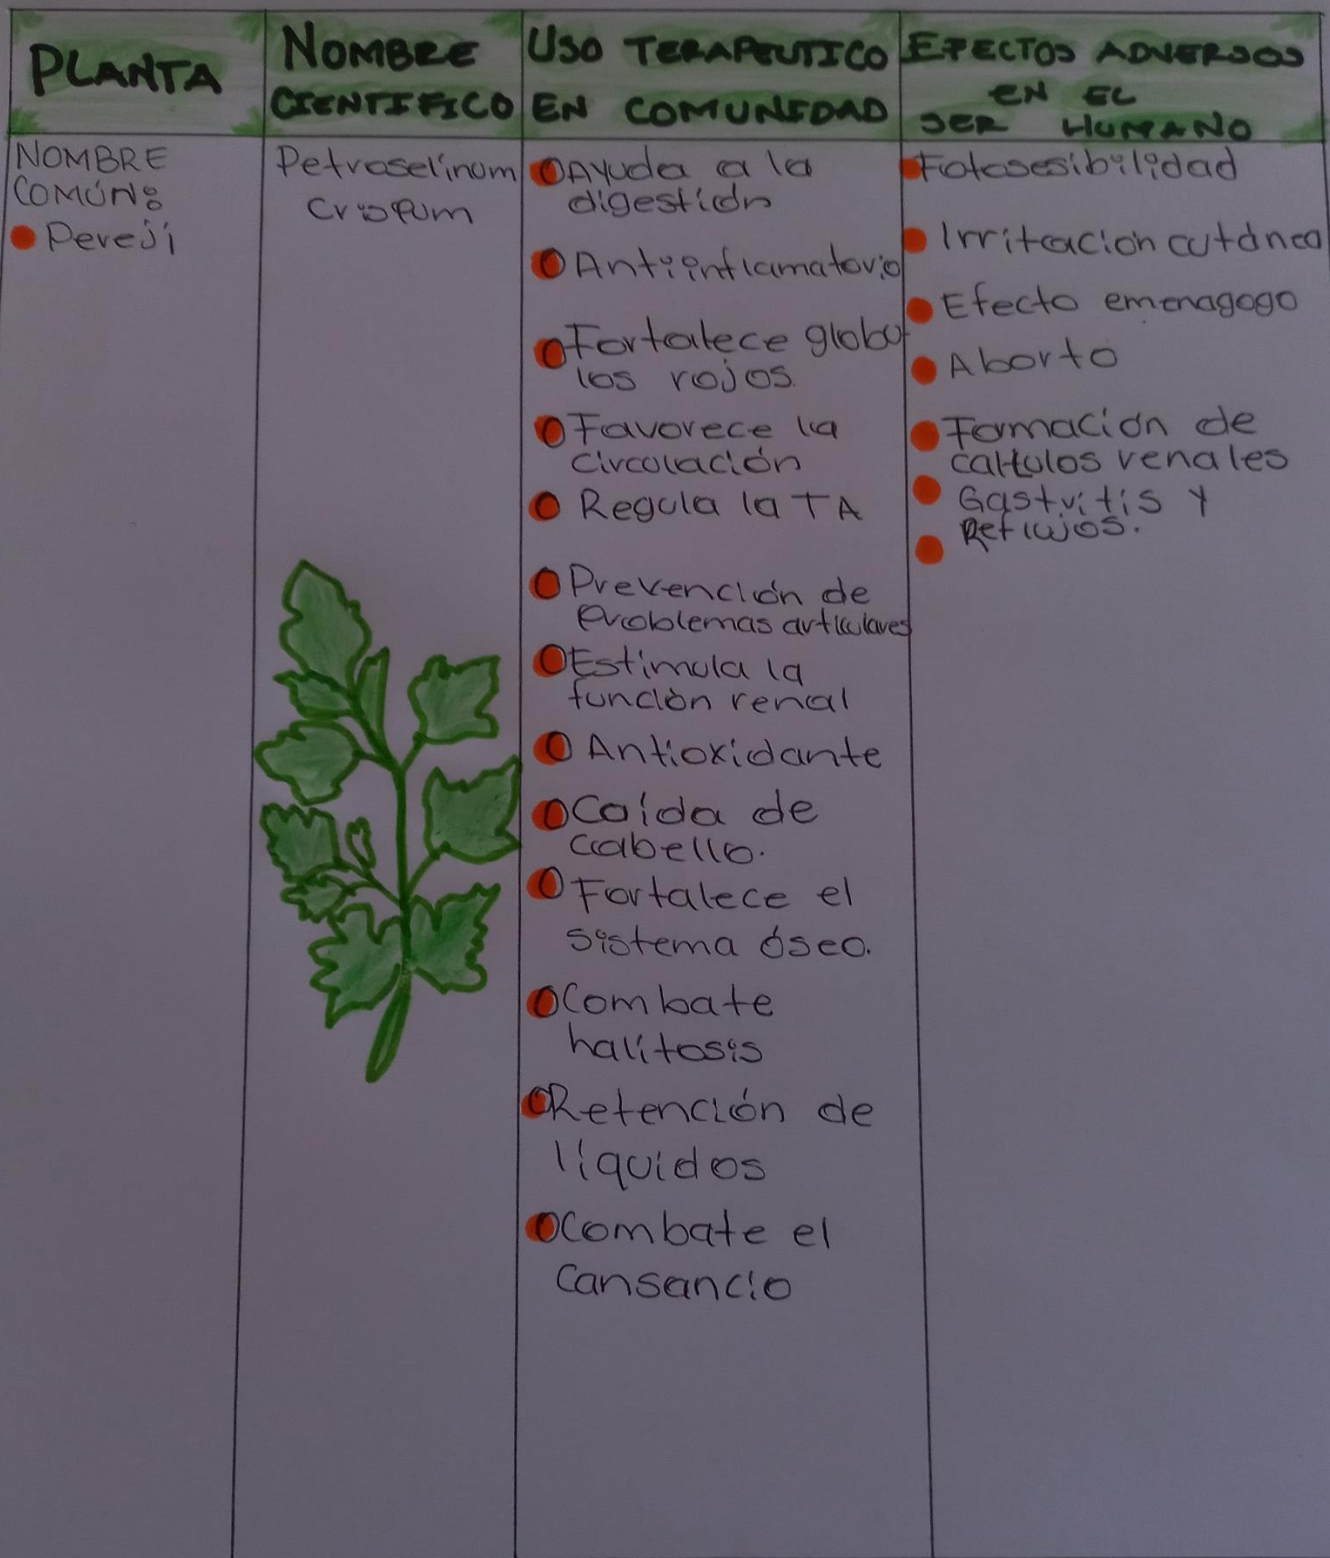 PLANTA
NOMBRE
CIENTIFICO
USO TERAPEUTICO
EN COMUNIDAD
EFECTOS ADVERSOS
EN EL
SER HUMANO
NOMBRE
COMÚN:
Pereji
Petroselinum
Crispum
Ayuda a la
digestión
Antiinflamatorio
Fortalece globu
los rojos.
Favorece la
circulación
Regula la TA
Prevención de
Problemas articulares
Estimula la
función renal
Antioxidante
Caída de
cabello.
Fortalece el
sistema óseo.
Combate
halitosis
Retención de
líquidos
Combate el
cansancio
Fotosesibilidad
Irritacion cutánea
Efecto emenagogo
Aborto
Formación de
calculos renales
Gastritis y
Reflujos.